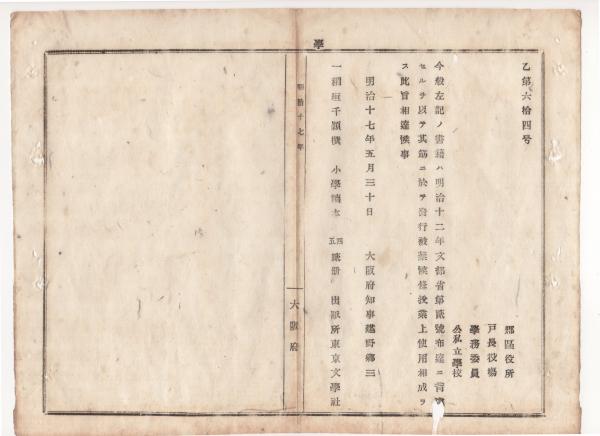 學
乙第六拾四号
郡區役所
戸長役場
學務委員
公私立學校
今般左記ノ書籍ハ明治十二年文部省第貳號布達ニ背戻
セルヲ以テ其筋ニ於テ發行被禁候條授業上使用相成ラ
ス此旨相達候事
明治十七年五月三十日 大阪府知事建野郷三
一稲垣千頴撰 小學讀本 四五 貳册 出版所東京文學社
明治十七年
大阪府